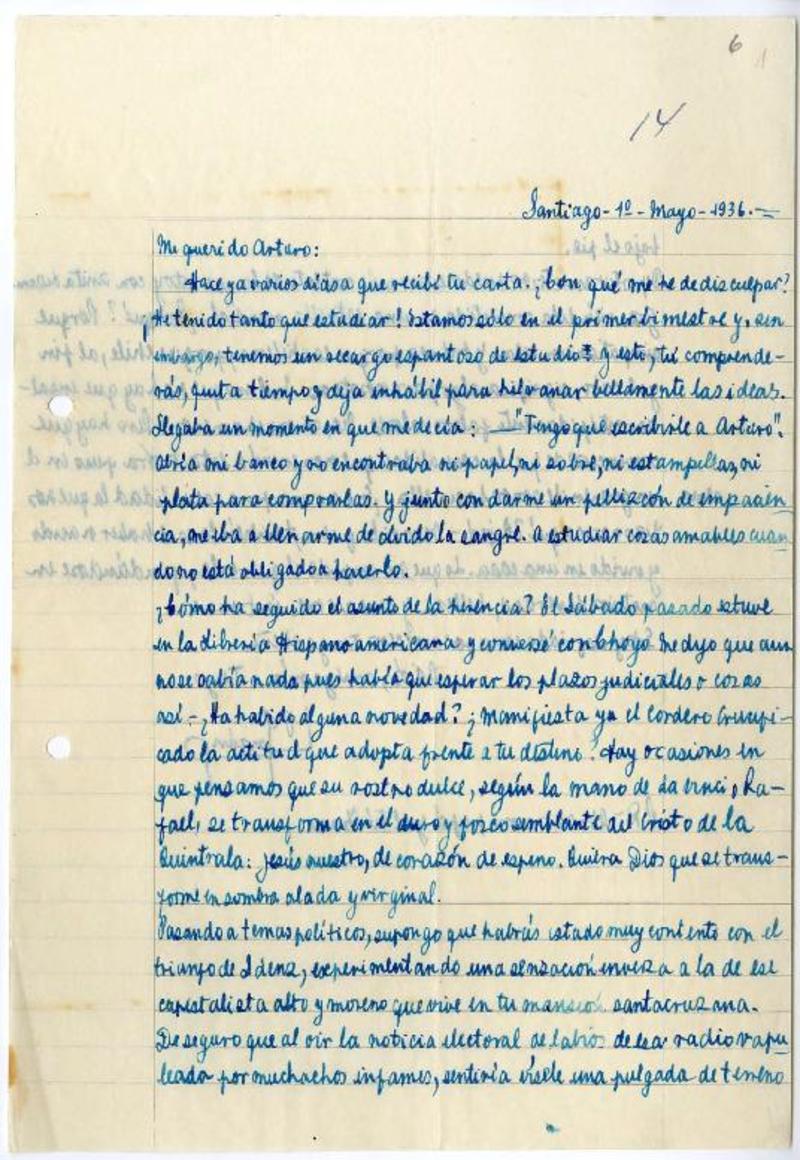 6
14
Santiago - 1º - Mayo - 1936. =
Mi querido Arturo:
Hace ya varios días a que recibí tu carta. ¿Con qué me he de disculpar?
¡He tenido tanto que estudiar! Estamos sólo en el primer bimestre y, sin
embargo, tenemos un recargo espantoso de estudio. Y esto, tú comprende-
rás, quita tiempo y deja inhábil para hilvanar bellamente las ideas.
Llegaba un momento en que me decía: — "Tengo que escribirle a Arturo".
Abría mi banco y no encontraba ni papel, ni sobre, ni estampillas, ni
plata para comprarlas. Y junto con darme un pellizcón de impacien-
cia, me iba a llenarme de olvido la sangre. A estudiar cosas amables cuan-
do no está obligado a hacerlo.
¿Cómo ha seguido el asunto de la herencia? El Sábado pasado estuve
en la librería Hispanoamericana y conversé con Choyo. Me dijo que aun
no se sabía nada pues había que esperar los plazos judiciales o cosas
así - ¿Ha habido alguna novedad? ¿Manifiesta ya el Cordero Crucifi-
cado la actitud que adopta frente a tu destino? Hay ocasiones en
que pensamos que su rostro dulce, según la mano de Da Vinci o Ra-
fael, se transforma en el duro y fosco semblante del Cristo de la
Quintrala: Jesús nuestro, de corazón de espino. Quiera Dios que se trans-
forme en sombra alada y virginal.
Pasando a temas políticos, supongo que habrás estado muy contento con el
triunfo de Idenz, experimentando una sensación inversa a la de ese
capitalista alto y moreno que vive en tu mansión santacruzana.
De seguro que al oir la noticia electoral de labios de esa radio vapu-
leada por muchachos infames, sentiría írsele una pulgada de terreno